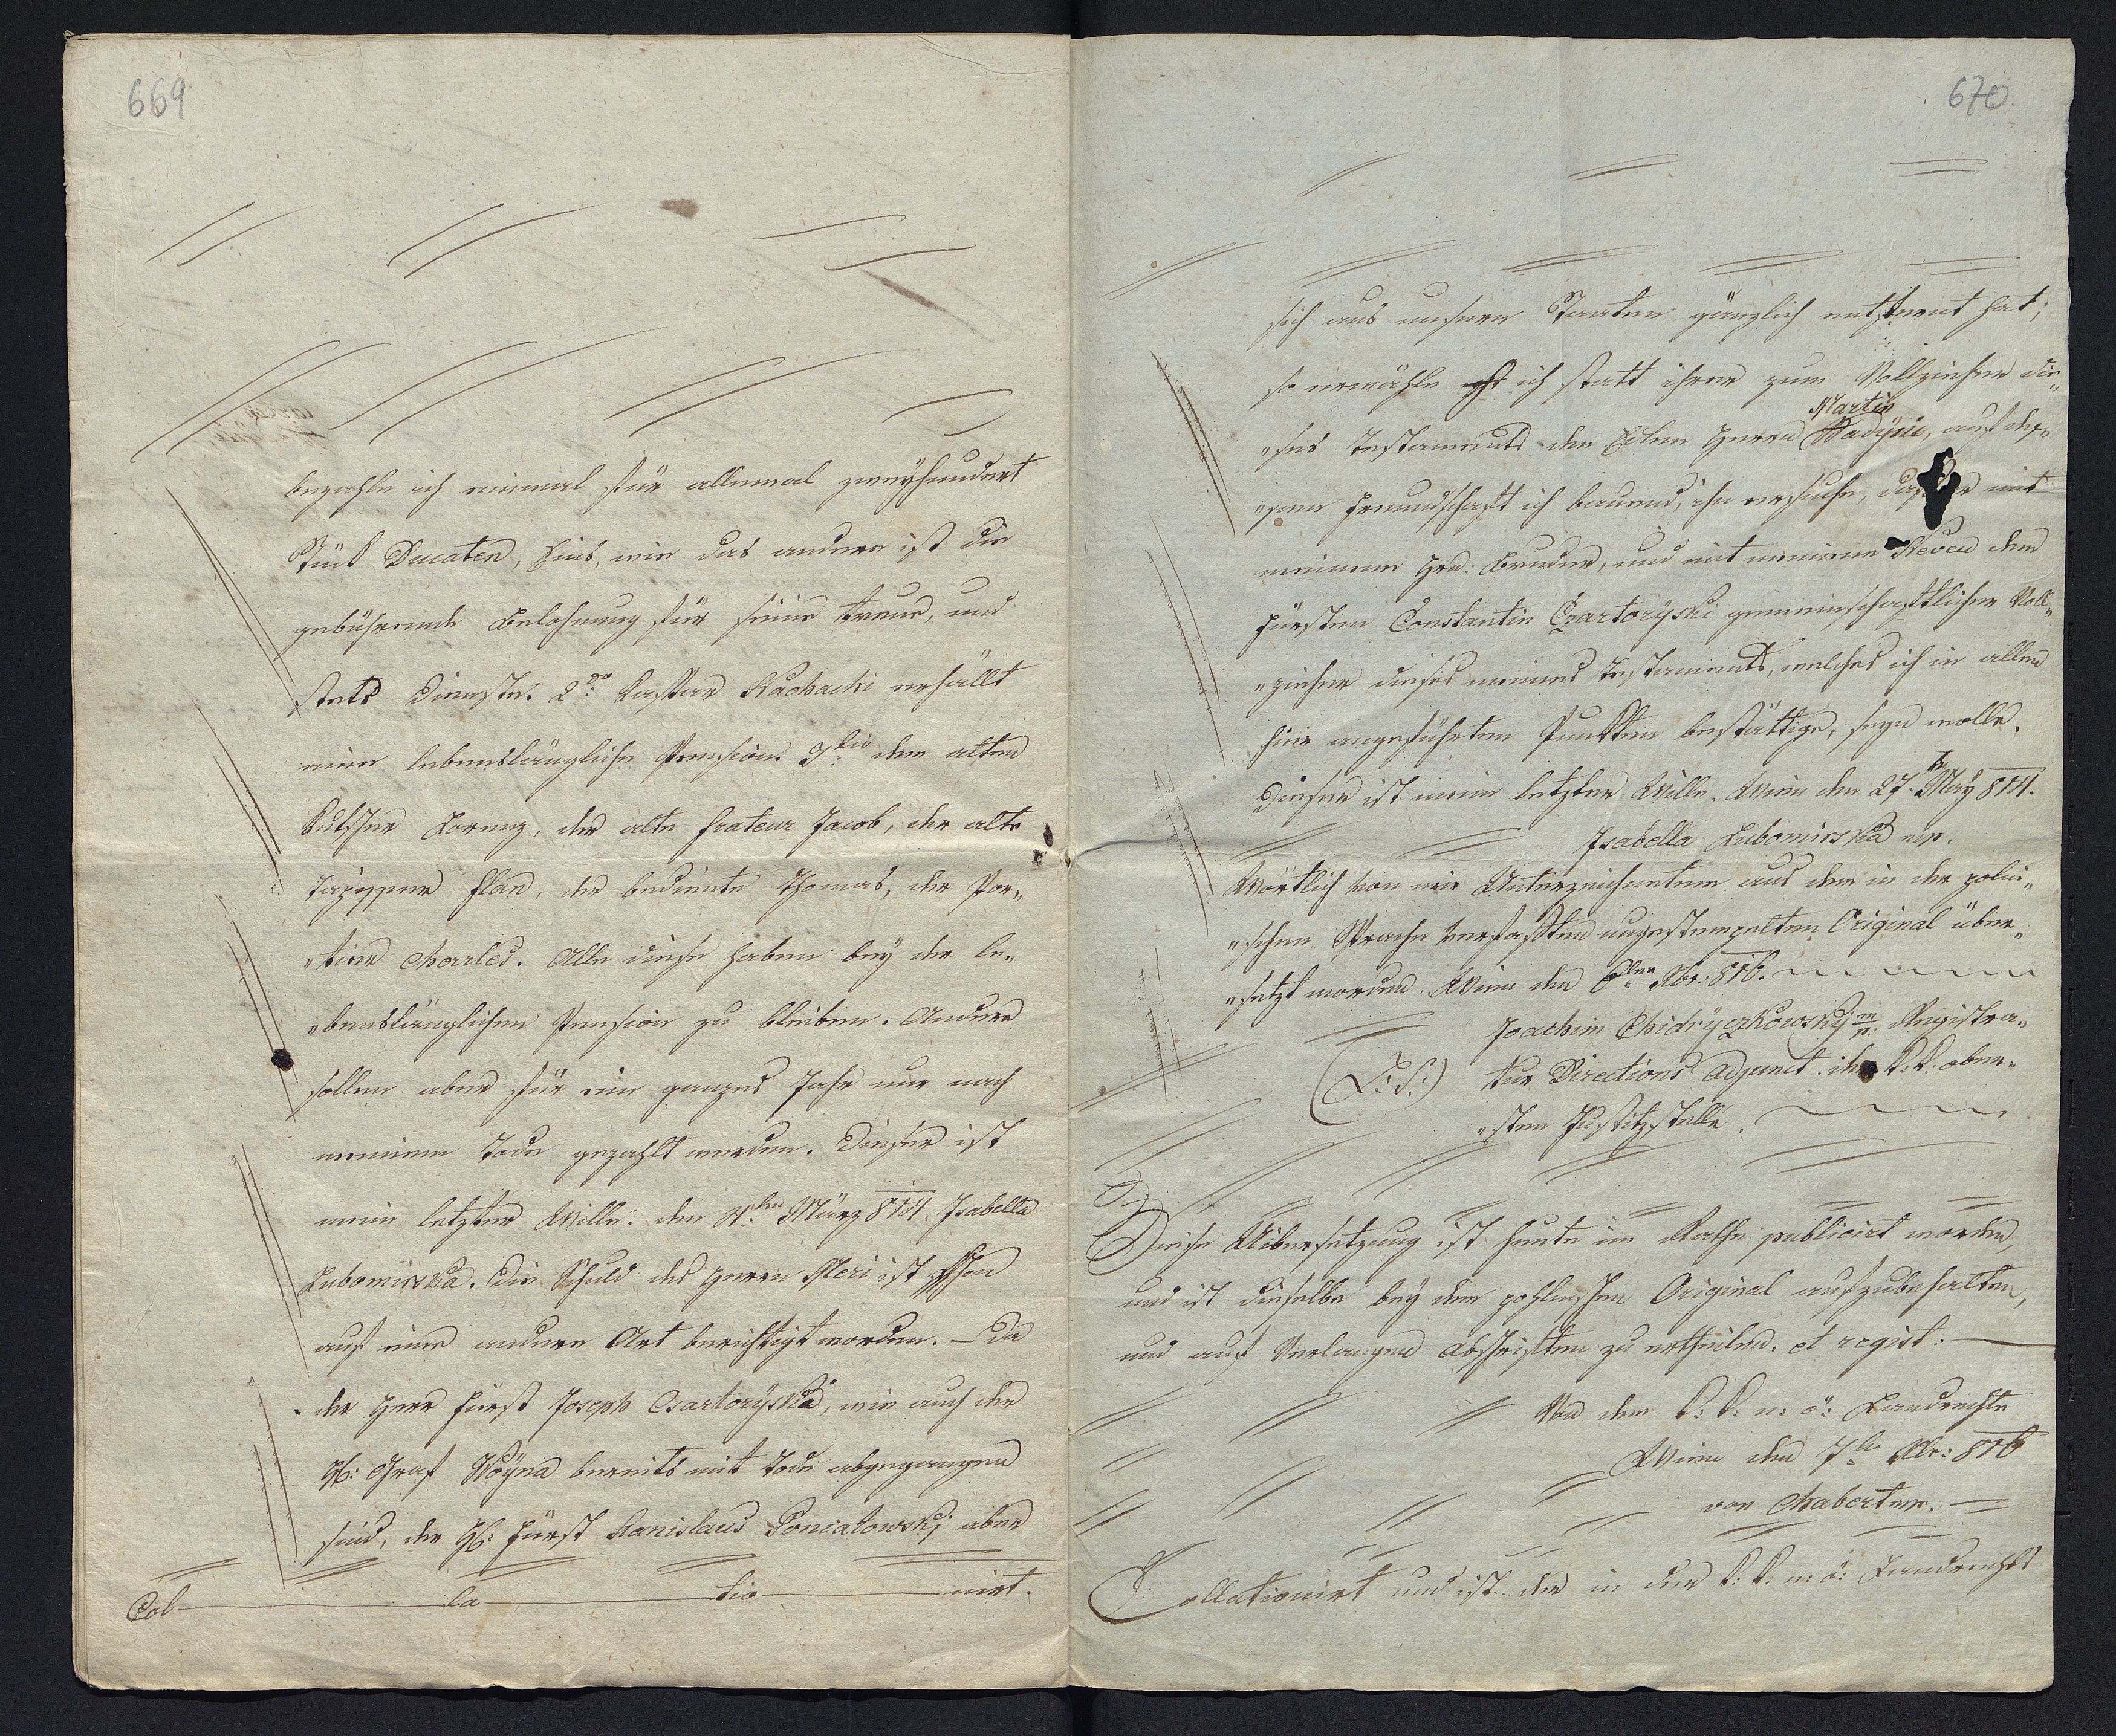 669
bezahle ich einmal für allemal zweyhundert
Stück Ducaten, Eins, wie das andere ist die
gebührende Belohnung für seine treue, und
stete Dienste. 2do: Caspar Kuchacki erhällt
eine lebenslängliche Pension. 3tio: dem alten
Kutscher Lorenz, der alte frateur Jacob, der alte
Tapezzierer Flan, der bediente Thomas, der Por„
„tier Charles. Alle diese haben bey der le„
„benslänglichen Pension zu bleiben. Andere
sollen aber für ein ganzes Jahr nur nach
meinem Tode gezahlt werden. Dieser ist
mein letzter Wille. den 4ten März 814. Isabella
Lubomirska. Die Schuld des Herrn Neri ist schon
auf eine andere Art berichtigt worden. – Da
der Herr Fürst Joseph Czartoryska, wie auch der
H: Graf Woyna bereits mit Tode abgegangen
sind, der H: Fürst Stanislaus Poniatowskj aber
Col la tio nirt.
670
sich aus unsern Staaten gänzlich entfernt hat;
so erwähle ich statt ihrer zum Vollzieher die„
„ses Testaments den Edlen Herrn Martin Badyni, auf des„
„sen Freundschaft ich bauend, ihn ersuche, daß er mit
meinem Hrn: Bruder, und mit meinem Neveu dem
Fürsten Constantin Czartoryski gemeinschaftlicher Voll„
„zieher dieses meines Testaments, welches ich in allen
hier angeführten Punkten bestättige, seyn wolle.
Dieser ist mein letzter Wille. Wien den 27. te May 814.
Isabella Lubomirska mp.
Wörtlich von mir Unterzeichneten aus dem in der pohlni„
„schen Sprache verfaßten ungestempelten Original über„
„setzt worden. Wien den 6ten Xbr: 816.
Joachim Chidryczkowsky mp. Registra„
(L: S:) tur Directions Adjunct der k. k. ober„
„sten Justitzstelle.
Diese Uibersetzung ist heute im Rathe publicirt worden,
und ist dieselbe bey dem pohlnischen Original aufzubehalten,
und auf Verlangen Abschriften zu ertheilen. et regist:
Von dem k: k: n: ö: Landrechte
Wien den 7te Xbr: 816
von Chabert mp.
Collationirt und ist der in der k: k: n: ö: Landrechts